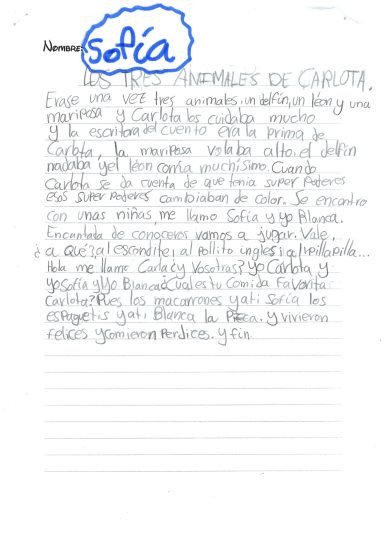 NOMBRE: Sofía
LOS TRES ANIMALES DE CARLOTA.
Erase una vez tres animales, un delfín, un léon y una
mariposa y Carlota los cuidaba mucho
y la escritora del cuento era la prima de
Carlota, la mariposa volaba alto, el delfin
nadaba y el léon corría muchísimo. Cuando
Carlota se da cuenta de que tenia super poderes
esos super poderes cambiaban de color. Se encontro
con unas niñas, me llamo Sofía y yo Blanca.
Encantada de conoceros vamos a jugar. Vale,
¿a qué?, al escondite, al Pollito inglés, al Pilla Pilla...
Hola me llamo Carla ¿y vosotras? Yo Carlota y
yo Sofía y yo Blanca ¿cual es tu comida favorita
Carlota? Pues los macarrones y a ti Sofía los
espaguetis y a ti Blanca la Pizca. y vivieron
felices y comieron Perdices. y fin.